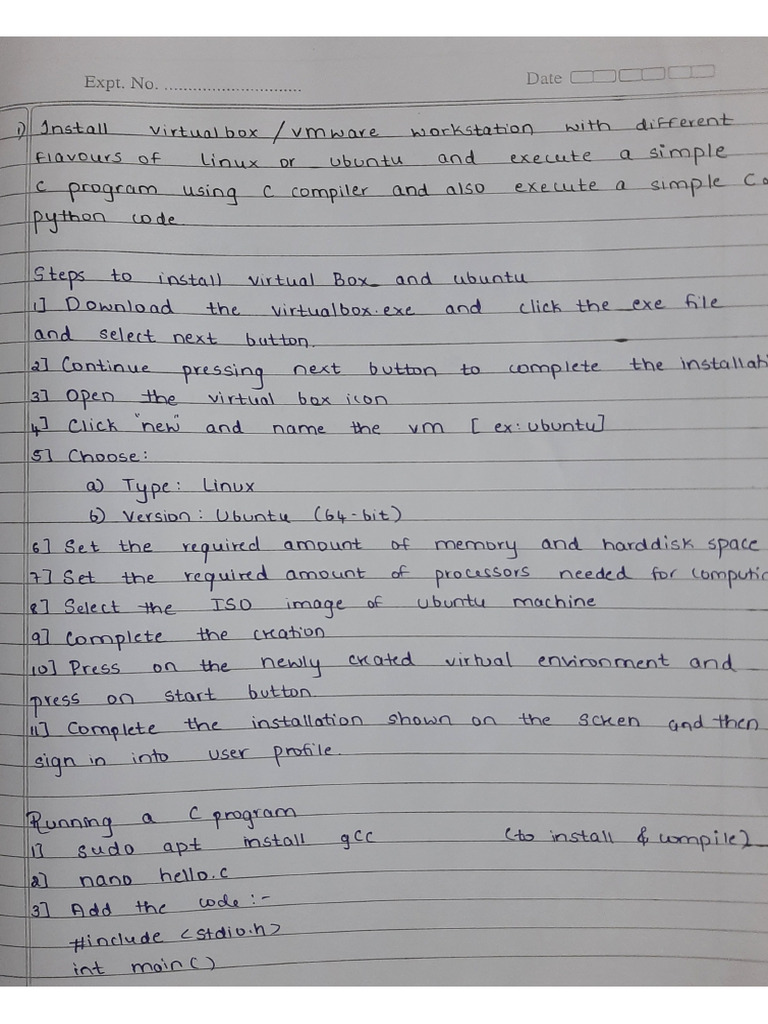 Expt. No. ............................
Date
1) Install virtualbox / vmware workstation with different
flavours of linux or ubuntu and execute a simple
c program using c compiler and also execute a simple
python code
Steps to install virtual Box and ubuntu
1] Download the virtualbox.exe and click the exe file
and select next button.
2] Continue pressing next button to complete the
3] Open the virtual box icon
4] Click "new" and name the vm [ex: ubuntu]
5] Choose:
a) Type: Linux
b) Version: Ubuntu (64-bit)
6] Set the required amount of memory and harddisk space
7] Set the required amount of processors needed for
8] Select the ISO image of ubuntu machine
9] Complete the creation
10] Press on the newly created virtual environment and
press on start button
11] Complete the installation shown on the screen and then
sign in into user profile.
Running a C program
1] sudo apt install gcc (to install & compile)
2] nano hello.c
3] Add the code:-
#include <stdio.h>
int main()